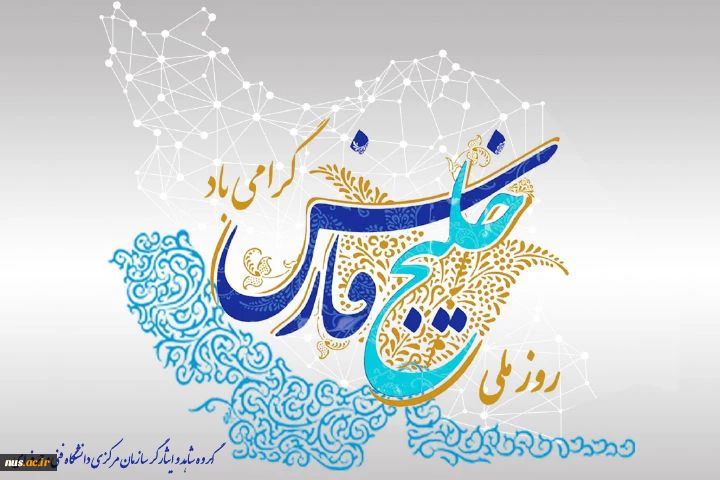 روز ملی
خلیج فارس
گرامی باد
گروه شاهد و ایثارگر سازمان مرکزی دانشگاه فنی
nus.ac.ir